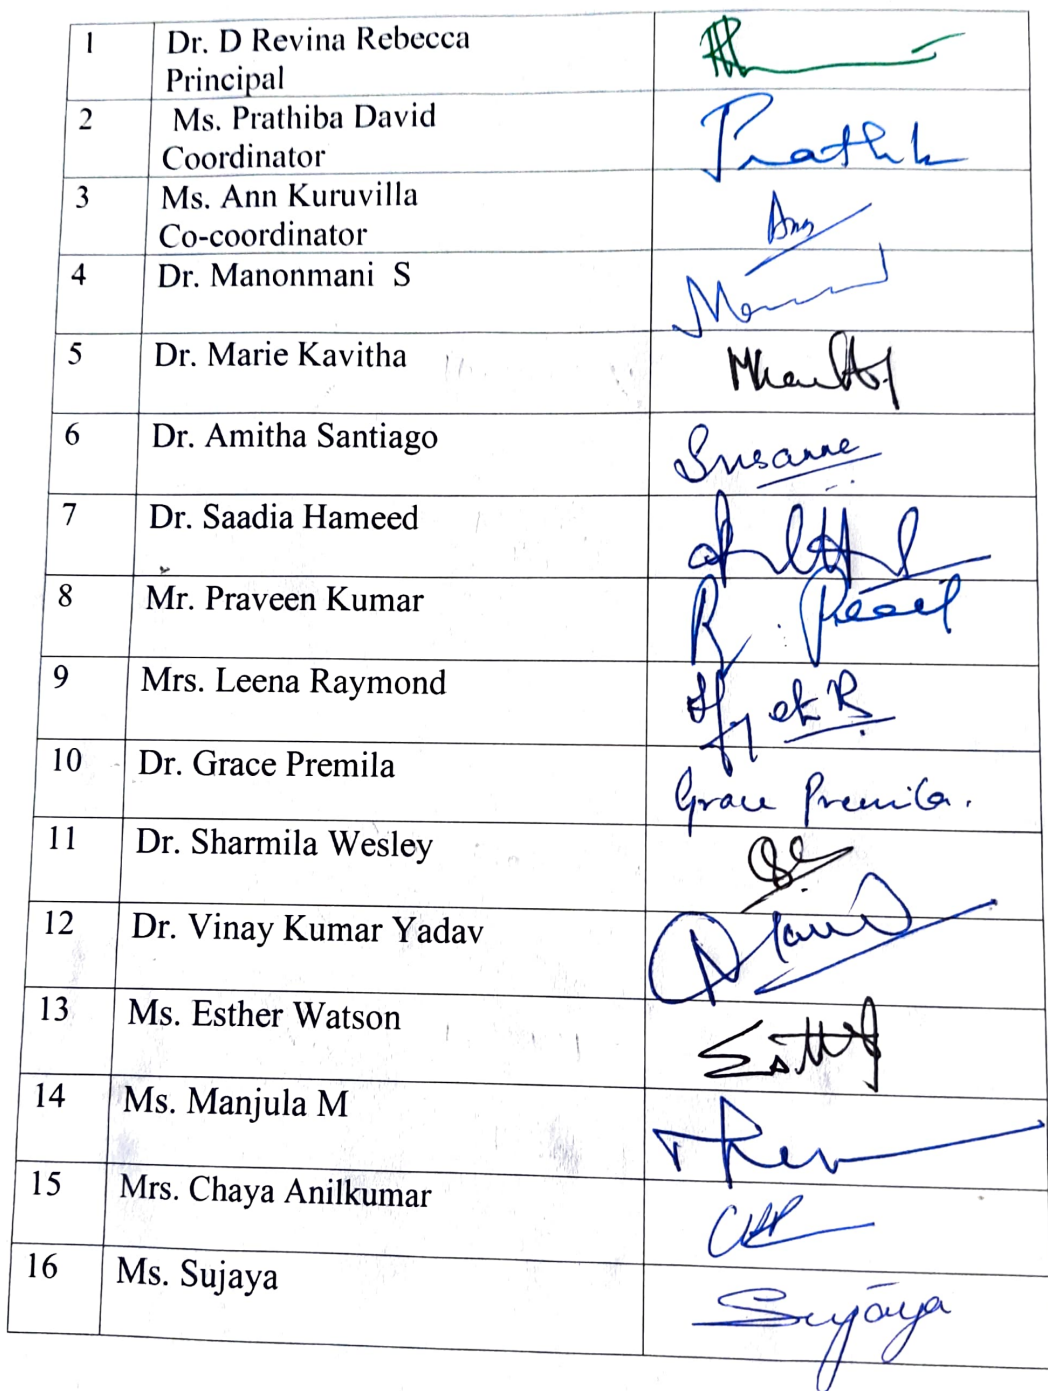 1 Dr. D Revina Rebecca
Principal
2 Ms. Prathiba David
Coordinator
3 Ms. Ann Kuruvilla
Co-coordinator
4 Dr. Manonmani S
5 Dr. Marie Kavitha
6 Dr. Amitha Santiago Susanne
7 Dr. Saadia Hameed
8 Mr. Praveen Kumar
9 Mrs. Leena Raymond
10 Dr. Grace Premila Grace Premila.
11 Dr. Sharmila Wesley
12 Dr. Vinay Kumar Yadav
13 Ms. Esther Watson
14 Ms. Manjula M
15 Mrs. Chaya Anilkumar
16 Ms. Sujaya Sujaya